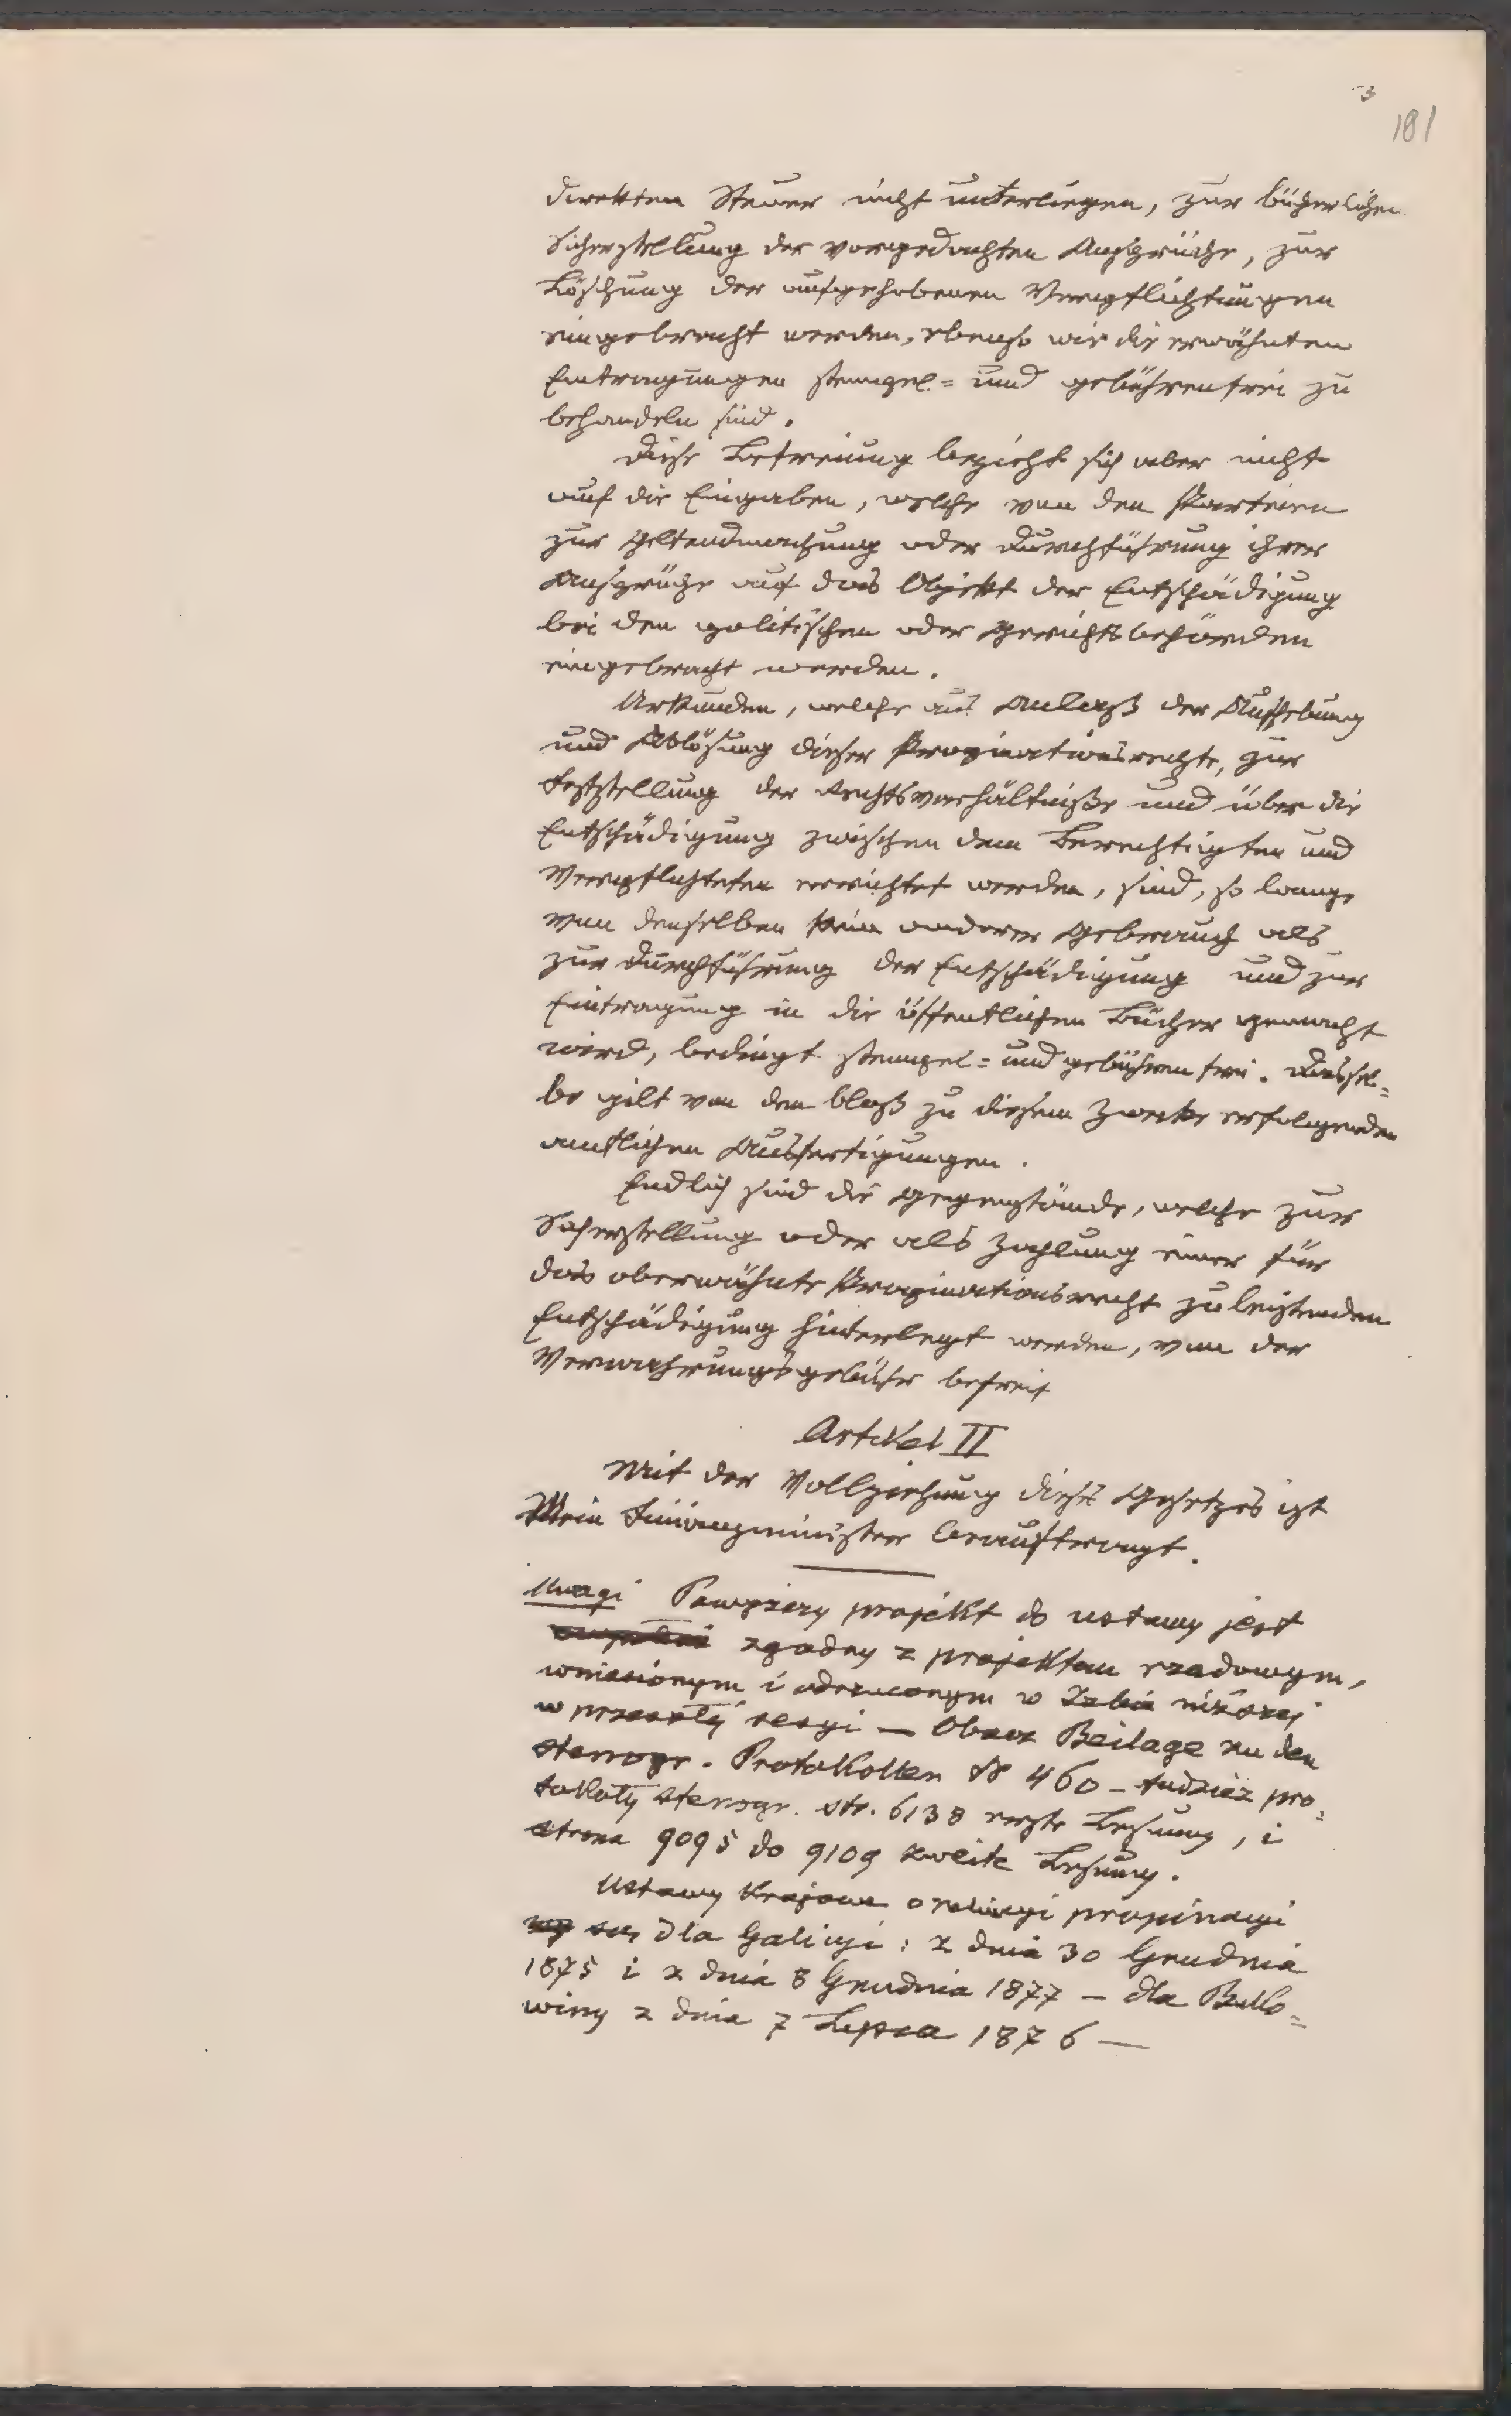 3
181
direkten Steuer nicht unterliegen, zur bücherlichen
Sicherstellung der vorgedachten Ansprüche, zur
Löschung der aufgehobenen Verpflichtungen
eingebracht werden, ebenso wie die erwähnten
Eintragungen stempel= und gebührenfrei zu
behandeln sind.
Diese Befreiung bezieht sich aber nicht
auf die Eingaben, welche von den Parteien
zur Geltendmachung oder Durchführung ihrer
Ansprüche auf das Objekt der Entschädigung
bei den politischen oder Gerichtsbehörden
eingebracht werden.
Urkunden, welche aus Anlaß der Aufhebung
und Ablösung dieser Propinationsrechte, zur
Feststellung der Rechtsverhältniße und über die
Entschädigung zwischen dem Berechtigten und
Verpflichteten errichtet werden, sind, so lange
von denselben kein anderer Gebrauch als
zur Durchführung der Entschädigung und zur
Eintragung in die öffentlichen Bücher gemacht
wird, bedingt stempel= und gebührenfrei. Dassel=
be gilt von den bloß zu diesem Zwecke erfolgenden
amtlichen Ausfertigungen.
Endlich sind die Gegenstände, welche zur
Sicherstellung oder als Zahlung einer für
das oberwähnte Propinationsrecht zu leistenden
Entschädigung hinterlegt werden, von der
Verwahrungsgebühr befreit
Artikel II
Mit der Vollziehung dieses Gesetzes ist
Mein Finanzminister beauftragt.
Uwagi Powyższy projekt do ustawy jest
zgodny z projektem rządowym,
wniesionym i odrzuconym w Izbie niższej
w przeszłéj sesyi — Obacz Beilage zu den
stenogr. Protokollen № 460 – tudzież pro=
tokoły stenogr. str. 6138 erste Lesung, i
strona 9095 do 9109 zweite Lesung.
Ustawy krajowe o propinacyi
są dla Galicyi: z dnia 30 Grudnia
1875 i z dnia 8 Grudnia 1877 — dla Buko=
winy z dnia 7 Lipca 1876 —